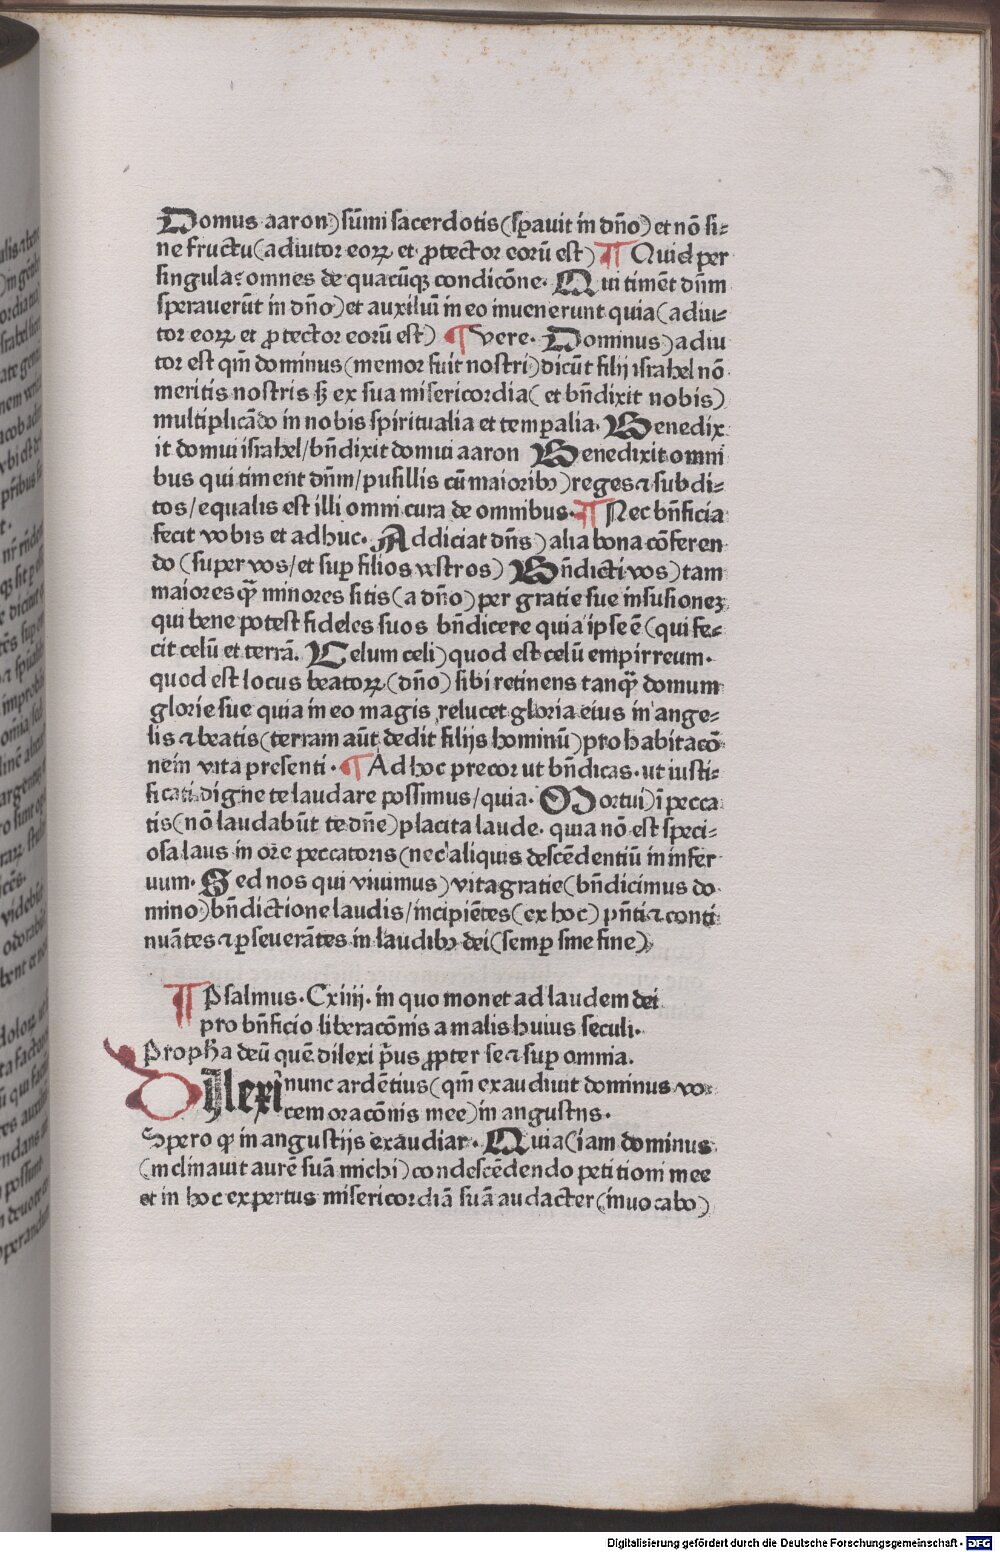 Domus aaron) sūmi sacerdotis (sꝑauit in dn̄o) et nō si⸗
ne fructu (adiutor eoꝝ et ꝓtector eorū est) ¶ Quid per
singula: omnes de quacūqꝫ condicōne. Qui timēt dn̄m
sperauerūt in dn̄o) et auxiliū in eo inuenerunt quia (adiu⸗
tor eoꝝ et ꝓtector eorū est) ¶ vere. Dominus) adiu
tor est qm̄ dominus (memor fuit nostri) dicūt filij israhel nō
meritis nostris sꝫ ex sua misericordia ( et bn̄dixit nobis)
multiplicādo in nobis spiritualia et temꝑalia. Benedix
it domui israhel / bn̄dixit domui aaron Benedixit omni
bus qui timent dn̄m / pusillis cū maioribꝫ) reges ⁊ subdi⸗
tos / equalis est illi omni cura de omnibus. ¶ Nec bn̄ficia
fecit vobis et adhuc. Addiciat dn̄s) alia bona cōferen
do (super vos / et suꝑ filios vestros) Bn̄dicti vos) tam
maiores qꝫ̄ minores sitis (a dn̄o) per gratie sue infusionem
qui bene potest fideles suos bn̄dicere quia ipse ē (qui fe⸗
cit celū et terrā. Celum celi) quod est celū empirreum.
quod est locus beatoꝝ (dn̄o) sibi retinens tanqꝫ̄ domum
glorie sue quia in eo magis relucet gloria eius in ange⸗
lis ⁊ beatis (terram aūt dedit filijs hominū) pro habitacō
nem vita presenti. ¶ Ad hoc precor ut bn̄dicas. ut iusti⸗
ficati digne te laudare possimus / quia. Mortui) ī pecca
tis (nō laudabūt te dn̄e) placita laude. quia nō est speci⸗
osa laus in ore peccatoris (nec aliquis descēdentiū in infer
num. Sed nos qui viuimus) vita gratie (bn̄dicimus do
mino) bn̄dictione laudis / incipiētes (ex hoc) pn̄ti ⁊ conti
nuātes ⁊ ꝑseuerātes in laudibꝫ dei (semꝑ sine fine)
¶ Psalmus. Cxiiij. in quo monet ad laudem dei
pro bn̄ficio liberacōnis a malis huius seculi.
Propħa deū quē dilexi pͥus ꝓpter se ⁊ suꝑ omnia.
Dilexi nunc ardētius (qm̄ exaudiuit dominus vo⸗
cem oracōnis mee) in angustijs.
Spero ꝙ in angustijs exaudiar. Quia (iam dominus
(inclinauit aurē suā michi) condescēdendo petitioni mee
et in hoc expertus misericordiā suā audacter (inuocabo)
Digitalisierung gefördert durch die Deutsche Forschungsgemeinschaft - DFG